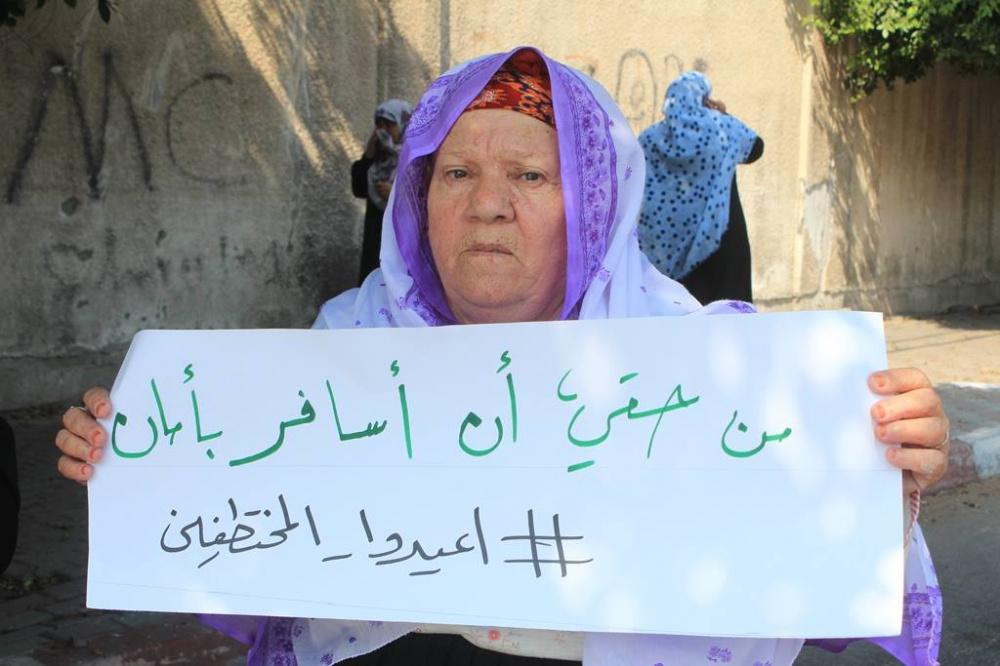 من حقي أن أسافر بأمان
#اعيدوا_المختطفين
MC